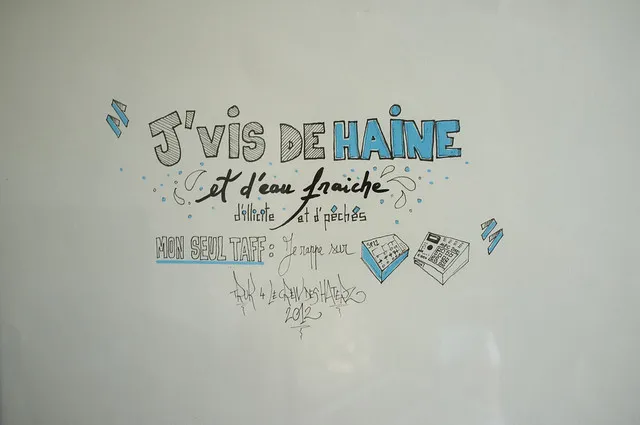 J'VIS DE HAINE
et d'eau fraiche
d'illicite et d'péchés
MON SEUL TAFF : Je rappe sur
4 LE CREW DES HATERZ
2012